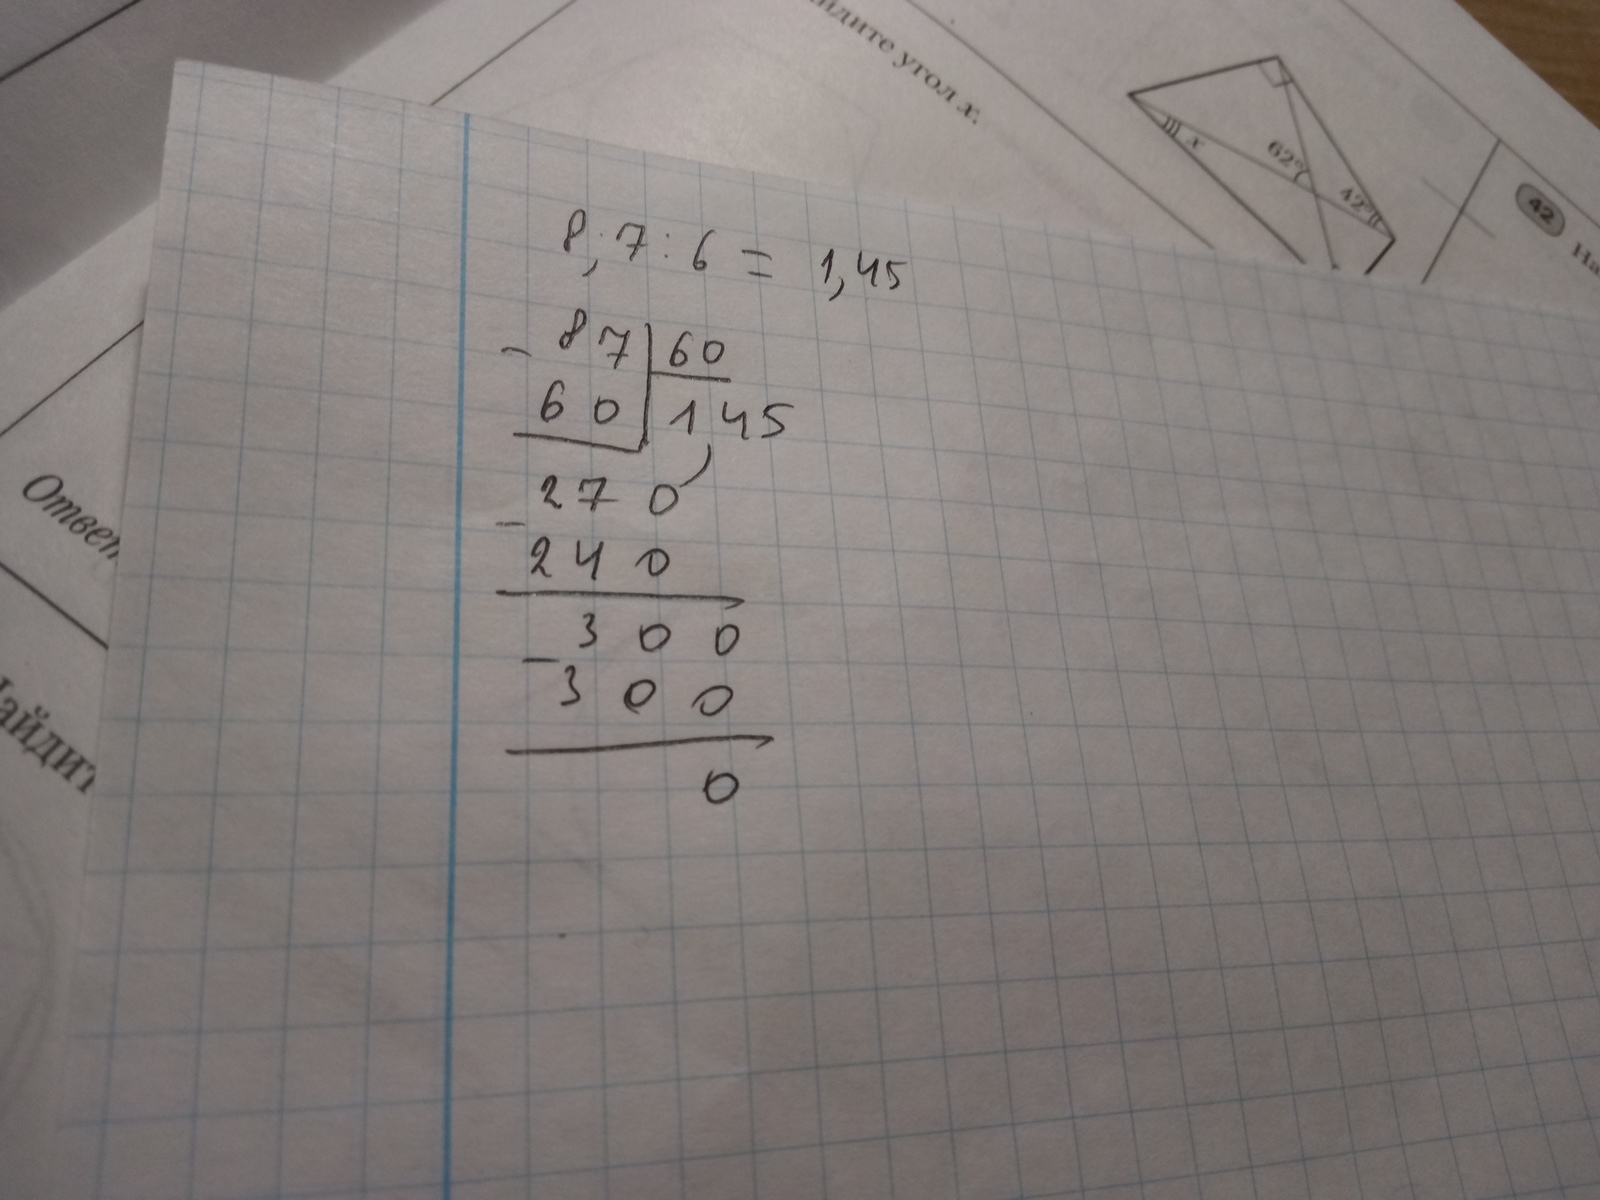 йдите угол x.
x
62°
42°
42
На
8,7:6 = 1,45
- 87 | 60
60 | 1,45
270
- 240
300
- 300
0
Ответ
Найдит